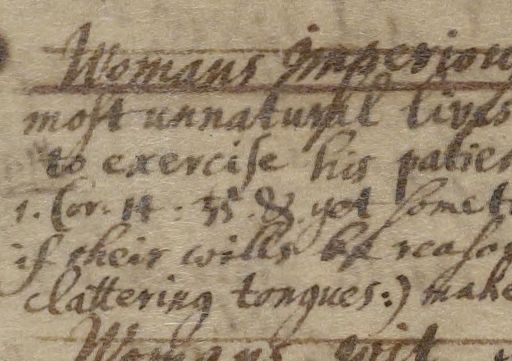 Womans Imperiou
most unnaturall lives
to exercise his patien
1. Cor. 14 : 35. &. yet somet
if their wills be reason
clattering tongues:) make
Womans wit